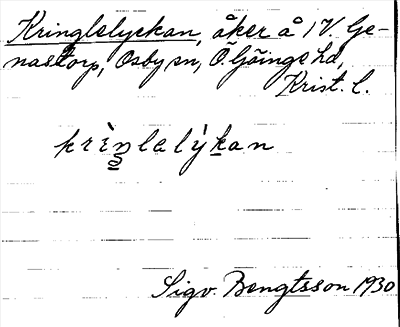 Kringlelyckan, åker å 1 V. Ge-
nastorp, Osby sn, Ö. Göinge hd,
Krist. l.
krìŋlelýkan
Sigv. Bengtsson 1930